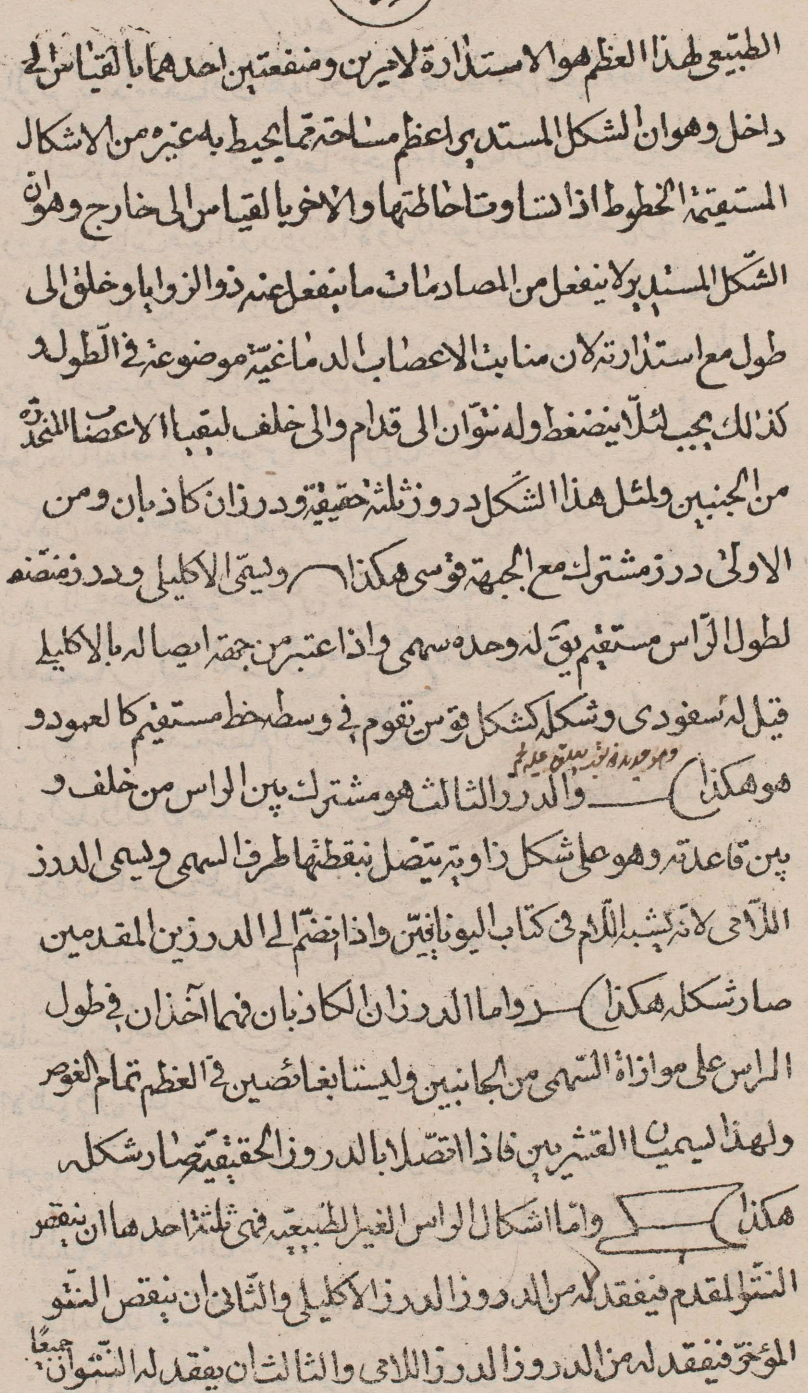 الطبيعى لهذا العظم هو الاستدارة لامرين ومنفعتين احدهما بالقياس الى
داخل وهو ان الشكل المستدير اعظم مساحة مما يحيط به غيره من الاشكال
المستقيمة الخطوط اذا تساوت احاطتها والاخر بالقياس الى خارج وهو ان
الشّكل المستدير لا ينفعل من المصادمات ما ينفعل عنه ذو الزوايا وخلق الى
طول مع استدارته لان منابت الاعصاب الدماغيّة موضوعة فى الطول و
كذالك يجب لئلّا ينضغط وله نتوّان الى قدام والى خلف ليقيا الاعصاب المنحدرة
من الجنبين ولمثل هذا الشكل دروز ثلثة حقيقيّة ودرزان كاذبان ومن
الاولى درز مشترك مع الجبهة قوسى هكذا ويسمّى الاكليلى ودرز منصّف
لطول الرّاس مستقيم يقَ له وحده سهمى واذا اعتبر من جهة اتصاله بالاكليلى
قيل له سفودى وشكله كشكل قوس تقوم فى وسطه خط مستقيم كالعمود و
هو هكذا والدرز الثالث هو مشترك بين الراس من خلف و
بين قاعدته وهو على شكل زاوية يتّصل بنقطتها طرف السهمى ويسمى الدرز
اللّامى لانّه يشبه اللّام فى كتاب اليونانيّين واذا انضّم الى الدرزين المقدمين
صار شكله هكذا واما الدرزان الكاذبان فهما آخذان فى طول
الراس على موازاة السّهمى من الجانبين وليستا بغائصين فى العظم تمام الغوص
ولهذا يسميان القشريين فاذا اتصّلا بالدروز الحقيقيّة صار شكله
هكذا وامّا اشكال الراس الغير الطبيعيّه فهى ثلثة احدها ان ينقص
النتّو المقدم فيفقد له من الدروز الدرز الاكليلى والثّانى ان ينقص النتّو
المؤخّر فيفقد له من الدروز الدرز اللامى والثالث ان يفقد له النّتوان جميعًا